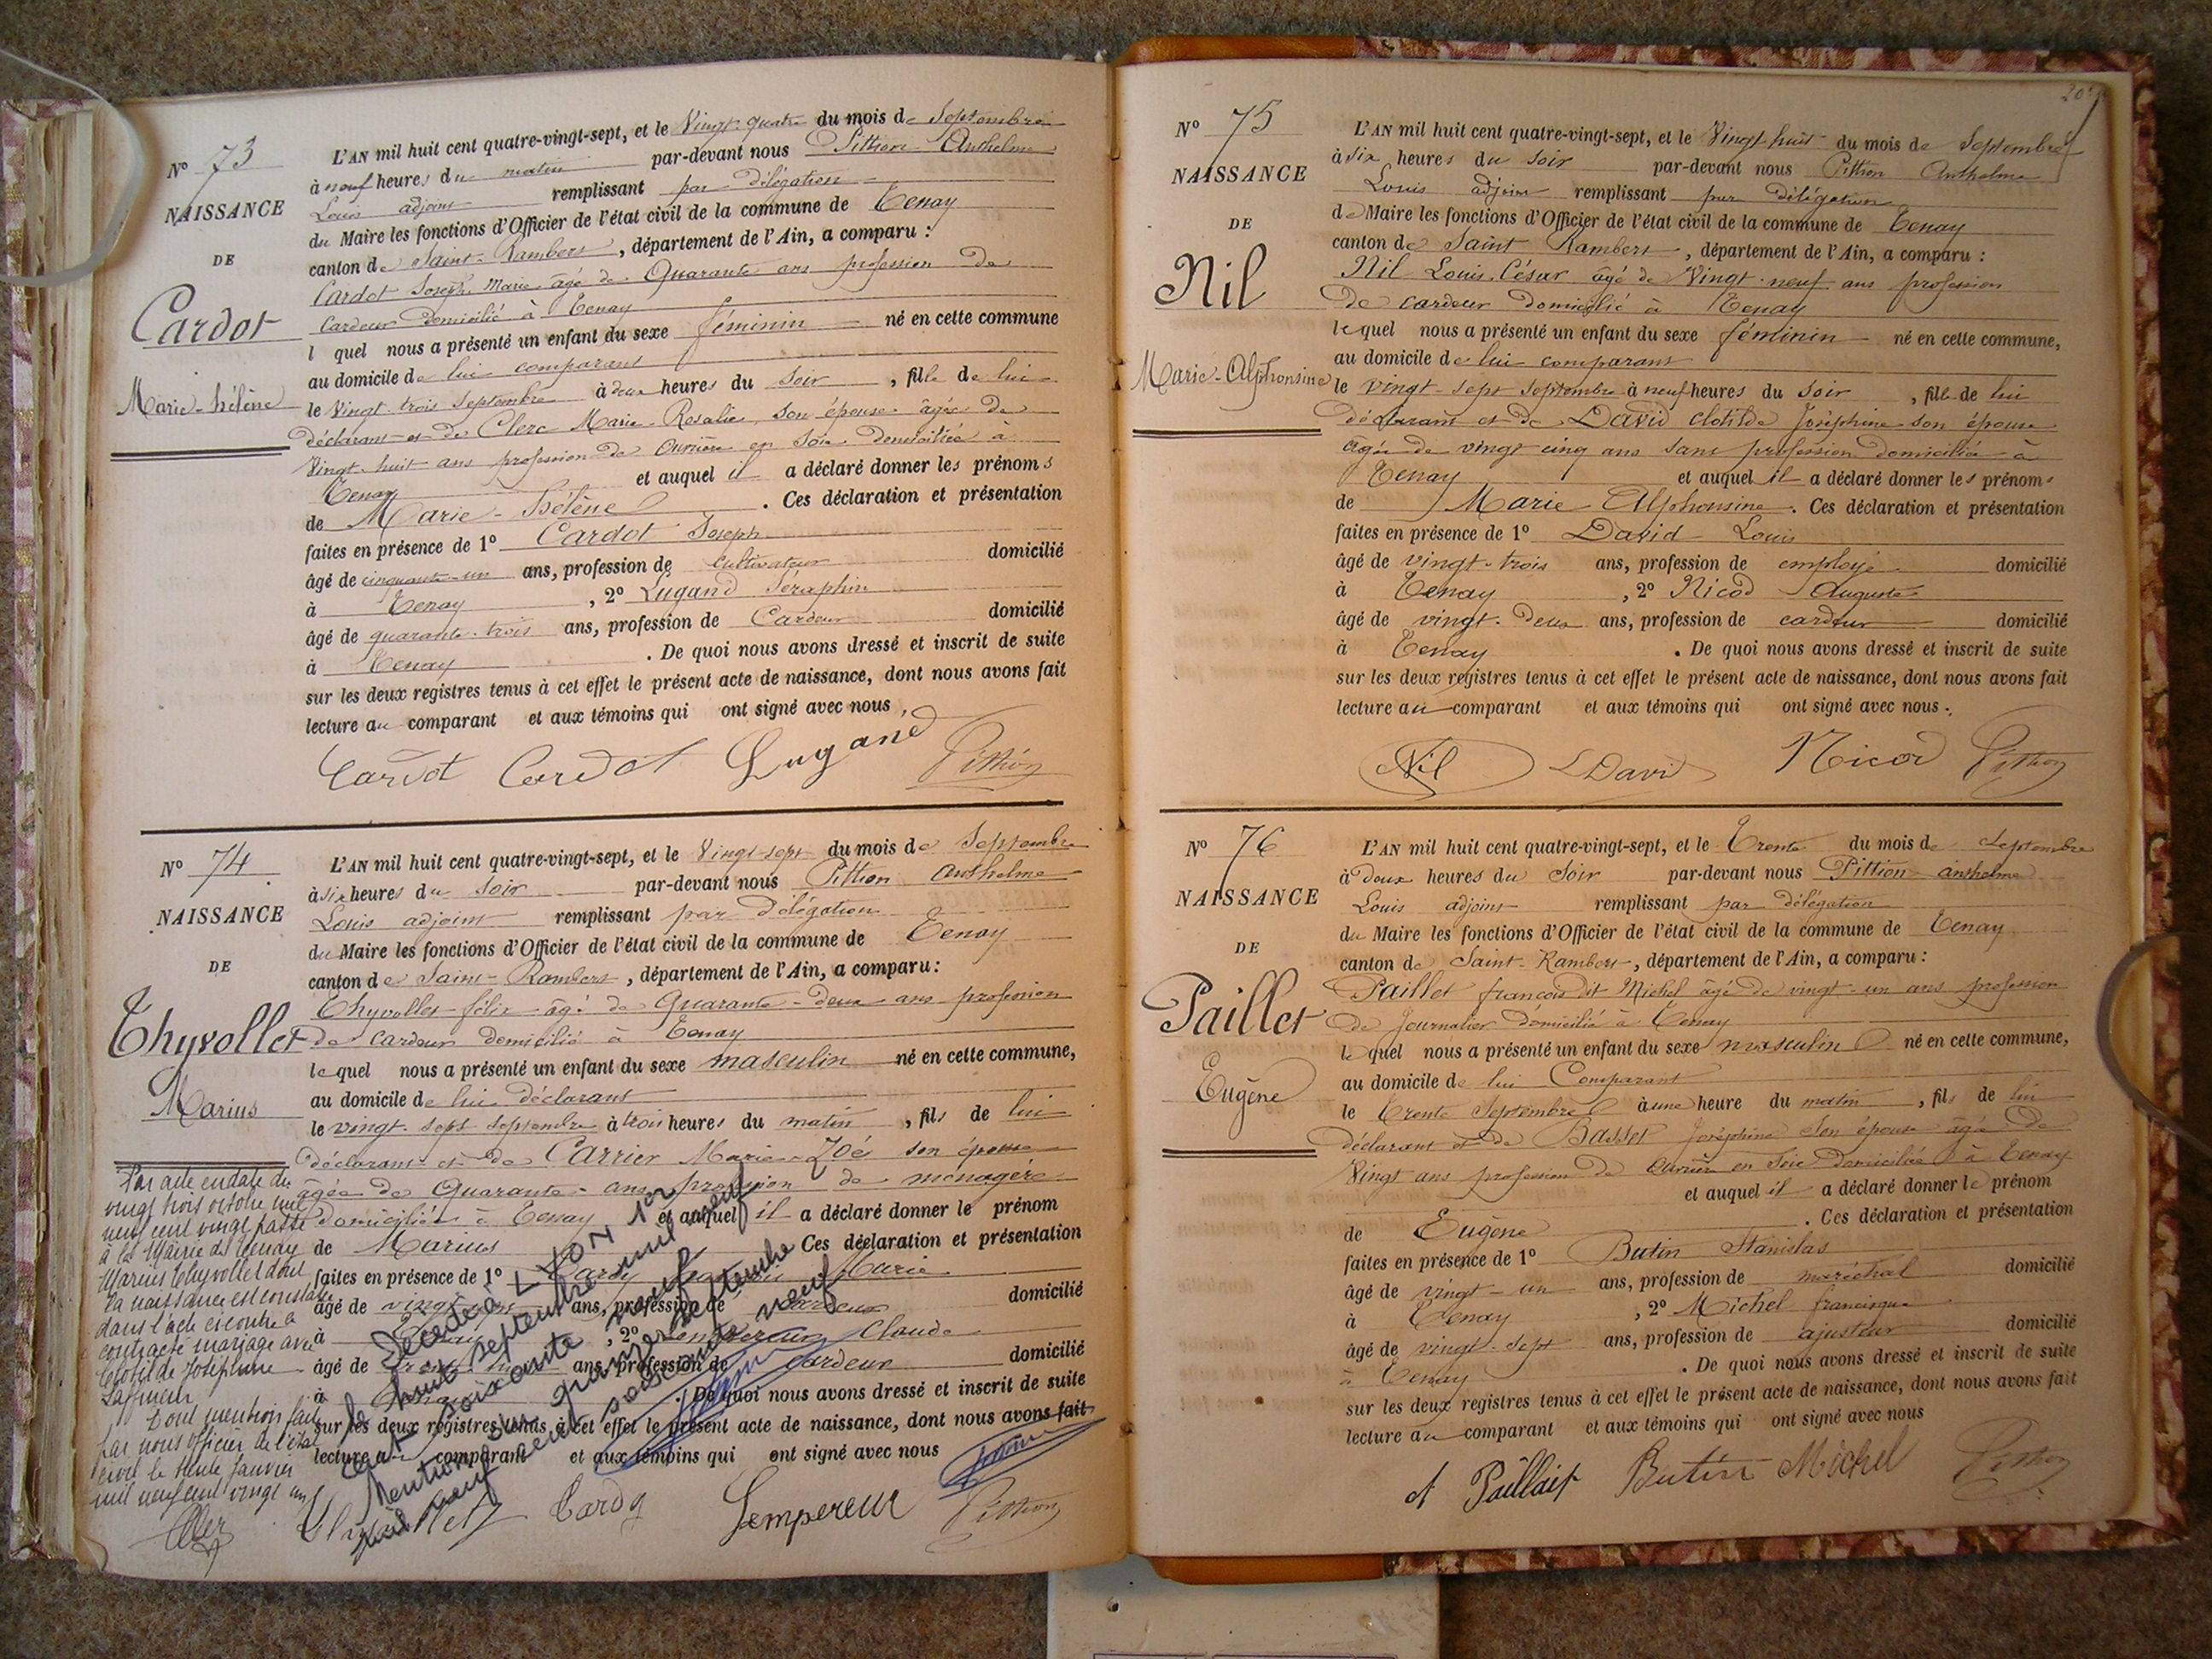 Nº 73
NAISSANCE
DE
Cardot
Marie-hélène
L'AN mil huit cent quatre-vingt-sept, et le Vingt-quatre du mois de Septembre
à neuf heures du matin par-devant nous Pittion Anthelme
Louis adjoint remplissant par délégation
du Maire les fonctions d'Officier de l'état civil de la commune de Tenay
canton de Saint-Rambert, département de l'Ain, a comparu :
Cardot Joseph Marie âgé de Quarante ans profession de
Cardeur domicilié à Tenay
l quel nous a présenté un enfant du sexe féminin né en cette commune
au domicile de lui comparant
le Vingt-trois Septembre à deux heures du soir, fille de lui
déclarant et de Clerc Marie-Rosalie, son épouse âgée de
Vingt-huit ans profession de ouvrière en soie domiciliée à
Tenay et auquel il a déclaré donner les prénoms
de Marie-hélène. Ces déclaration et présentation
faites en présence de 1º Cardot Joseph
âgé de cinquante-un ans, profession de cultivateur domicilié
à Tenay, 2º Lugand Séraphin
âgé de quarante-trois ans, profession de Cardeur domicilié
à Tenay. De quoi nous avons dressé et inscrit de suite
sur les deux registres tenus à cet effet le présent acte de naissance, dont nous avons fait
lecture au comparant et aux témoins qui ont signé avec nous,
Cardot Cardot Lugand Pittion
Nº 74
NAISSANCE
DE
Thyvollet
Marius
L'AN mil huit cent quatre-vingt-sept, et le Vingt-sept du mois de Septembre
à six heures du soir par-devant nous Pittion Anthelme
Louis adjoint remplissant par délégation
du Maire les fonctions d'Officier de l'état civil de la commune de Tenay
canton de Saint-Rambert, département de l'Ain, a comparu :
Thyvollet félix âgé de Quarante-deux ans profession
de cardeur domicilié à Tenay
lequel nous a présenté un enfant du sexe masculin né en cette commune,
au domicile de lui déclarant
le vingt-sept septembre à trois heures du matin, fils de lui
déclarant et de Carrier Marie-Zoé son épouse
âgée de Quarante-ans profession de ménagère
domiciliée à Tenay et auquel il a déclaré donner le prénom
de Marius Ces déclaration et présentation
faites en présence de 1º Cardy Marie
âgé de vingt ans, profession de cardeur domicilié
à Tenay, 2º Lempereur Claude
âgé de ans, profession de cardeur domicilié
à Tenay. De quoi nous avons dressé et inscrit de suite
sur les deux registres tenus à cet effet le présent acte de naissance, dont nous avons fait
lecture au comparant et aux témoins qui ont signé avec nous
Thyvollet Cardy Lempereur Pittion
Par acte en date du
vingt trois octobre mil
neuf cent vingt passé
à la Mairie de Tenay
Marius Thyvollet dont
la naissance est constatée
dans l'acte ci contre a
contracté mariage avec
Clotilde Joséphine
Dont mention faite
par nous officier de l'état
civil le trente janvier
mil neuf cent vingt un
Décédé à LYON
le huit septembre mil neuf
cent soixante neuf
Mention du quinze septembre
mil neuf cent soixante neuf
Nº 75
NAISSANCE
DE
Nil
Marie-Alphonsine
L'AN mil huit cent quatre-vingt-sept, et le Vingt-huit du mois de Septembre
à six heures du soir par-devant nous Pittion Anthelme
Louis adjoint remplissant par délégation
de Maire les fonctions d'Officier de l'état civil de la commune de Tenay
canton de Saint Rambert, département de l'Ain, a comparu :
Nil Louis-César âgé de Vingt-neuf ans profession
de cardeur domicilié à Tenay
lequel nous a présenté un enfant du sexe féminin né en cette commune,
au domicile de lui comparant
le vingt-sept septembre à neuf heures du soir, fille de lui
déclarant et de David Clotilde Joséphine son épouse
âgée de vingt cinq ans sans profession domiciliée à
Tenay et auquel il a déclaré donner les prénoms
de Marie Alphonsine. Ces déclaration et présentation
faites en présence de 1º David Louis
âgé de vingt-trois ans, profession de employé domicilié
à Tenay, 2º Nicod Auguste
âgé de vingt-deux ans, profession de cardeur domicilié
à Tenay. De quoi nous avons dressé et inscrit de suite
sur les deux registres tenus à cet effet le présent acte de naissance, dont nous avons fait
lecture au comparant et aux témoins qui ont signé avec nous.
Nil L David Nicod Pittion
Nº 76
NAISSANCE
DE
Paillet
Eugène
L'AN mil huit cent quatre-vingt-sept, et le Trente du mois de Septembre
à deux heures du Soir par-devant nous Pittion anthelme
Louis adjoint remplissant par délégation
du Maire les fonctions d'Officier de l'état civil de la commune de Tenay
canton de Saint-Rambert, département de l'Ain, a comparu :
Paillet françois dit Michel âgé de vingt-un ans profession
de Journalier domicilié à Tenay
lequel nous a présenté un enfant du sexe masculin né en cette commune,
au domicile de lui Comparant
le trente Septembre à une heure du matin, fils de lui
déclarant et de Basset Joséphine son épouse âgé de
Vingt ans profession de ouvrière en soie domiciliée à Tenay
et auquel il a déclaré donner le prénom
de Eugène. Ces déclaration et présentation
faites en présence de 1º Butin Stanislas
âgé de vingt-un ans, profession de maréchal domicilié
à Tenay, 2º Michel francisque
âgé de vingt-sept ans, profession de ajusteur domicilié
à Tenay. De quoi nous avons dressé et inscrit de suite
sur les deux registres tenus à cet effet le présent acte de naissance, dont nous avons fait
lecture au comparant et aux témoins qui ont signé avec nous
Paillait Butin Michel Pittion